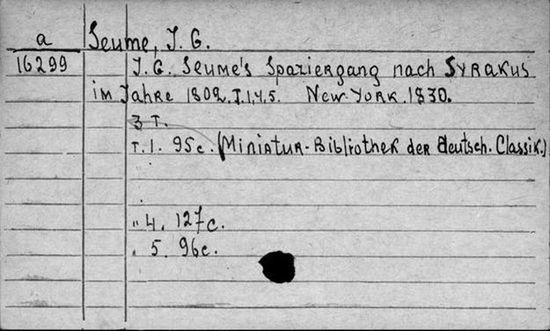 a Seume, J. G.
16299 J. G. Seume's Spaziergang nach Syrakus
im Jahre 1802. T.1,4,5. New-York. 1830.
3 T.
T. 1. 95 c. (Miniatur-Bibliothek der deutsch. Classik.)
" 4. 127 c.
" 5. 96 c.